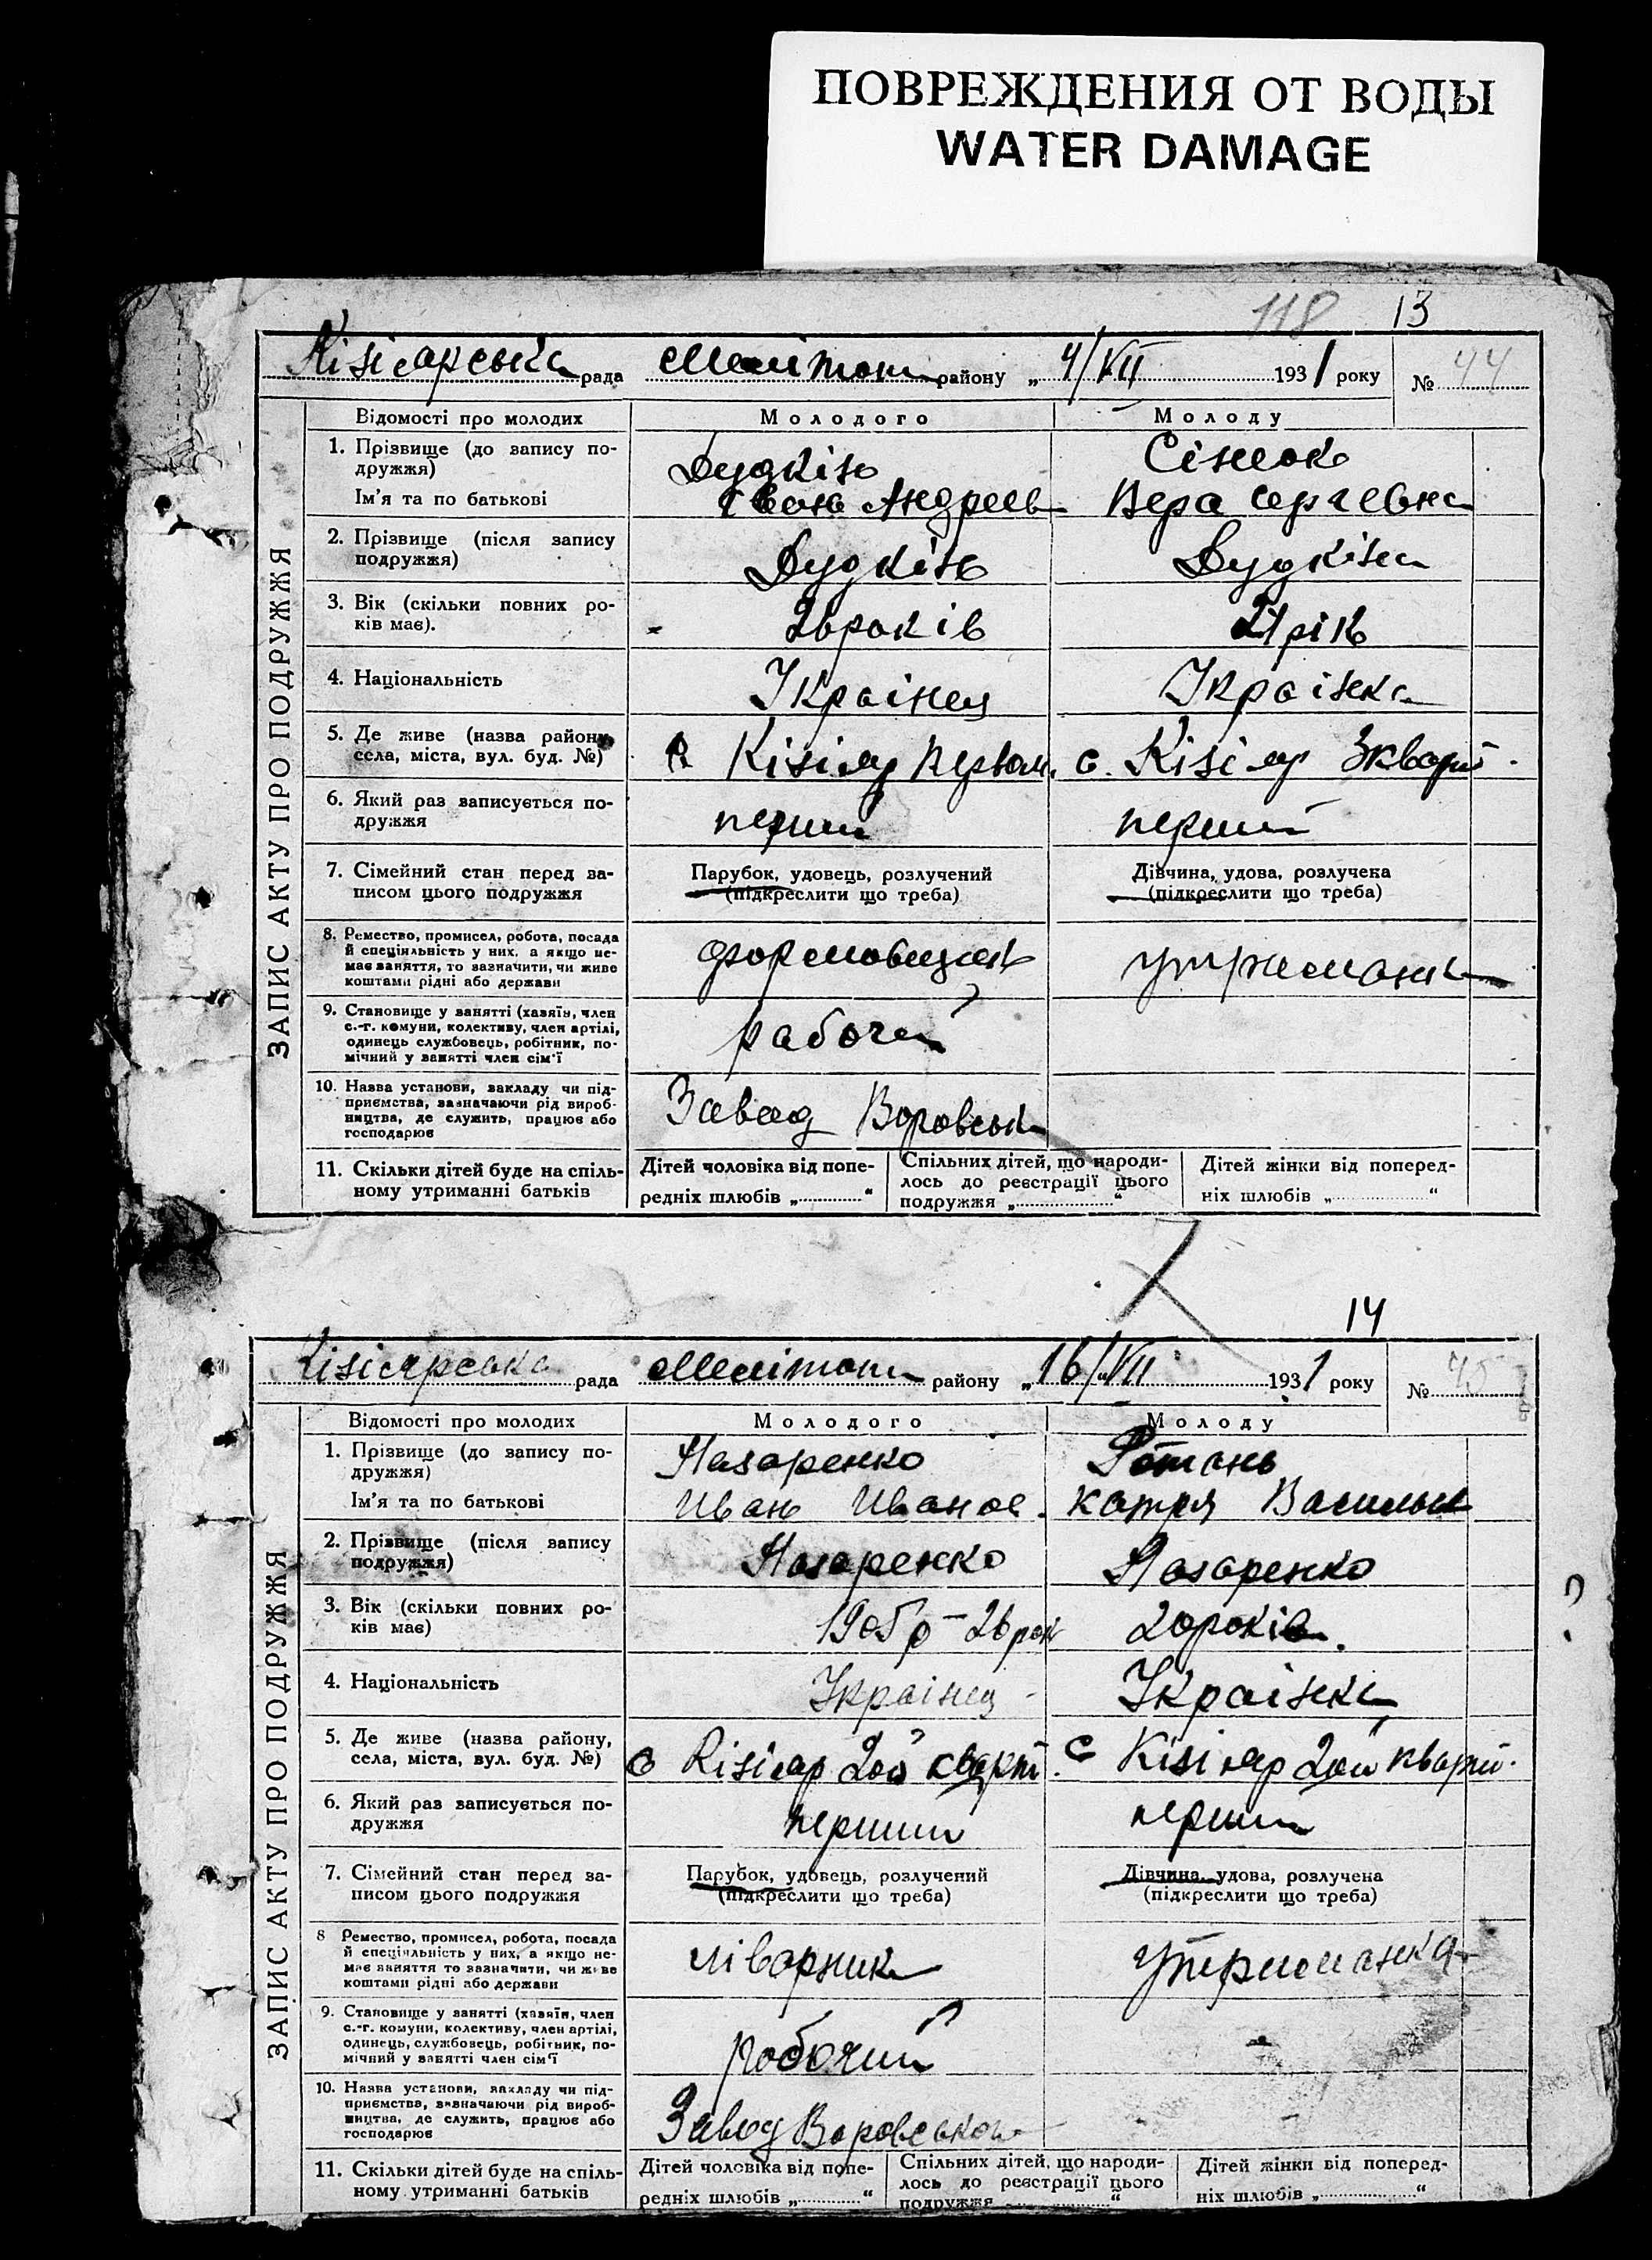 ПОВРЕЖДЕНИЯ ОТ ВОДЫ
WATER DAMAGE
118 13
Кізіярська рада Мелітоп району „ 4/VII 1931 року № 44
ЗАПИС АКТУ ПРО ПОДРУЖЖЯ
Відомості про молодих Молодого Молоду
1. Прізвище (до запису по-
дружжя) Дудкін Сінюк
Ім'я та по батькові Іван Андреев Вера Сергеевна
2. Прізвище (після запису
подружжя) Дудкін Дудкіна
3. Вік (скільки повних ро-
ків має). 26 років 21 рік
4. Національність Українец Українка
5. Де живе (назва району,
села, міста, вул. буд. №) с Кізіяр Первом. с. Кізіяр 3 кварт.
6. Який раз записується по-
дружжя перший перший
7. Сімейний стан перед за-
писом цього подружжя
Парубок, удовець, розлучений
(підкреслити що треба)
Дівчина, удова, розлучена
(підкреслити що треба)
8. Ремество, промисел, робота, посада
й спеціяльність у них, а якщо не-
має заняття, то зазначити, чи живе
коштами рідні або держави
формовщик утриманка
9. Становище у занятті (хазяїн, член
с.-г. комуни, колективу, член артілі,
одинець службовець, робітник, по-
мічний у занятті член сім'ї
рабочий
10. Назва установи, закладу чи під-
приємства, зазначаючи рід вироб-
ництва, де служить, працює або
господарює
Завод Воровськ
11. Скільки дітей буде на спіль-
ному утриманні батьків
Дітей чоловіка від попе-
редніх шлюбів „ “
Спільних дітей, що народи-
лось до реєстрації цього
подружжя „ “
Дітей жінки від поперед-
ніх шлюбів „ “
14
Кізіярська рада Мелітоп району „ 16/VII 1931 року № 45
ЗАПИС АКТУ ПРО ПОДРУЖЖЯ
Відомості про молодих Молодого Молоду
1. Прізвище (до запису по-
дружжя) Назаренко Ротань
Ім'я та по батькові Иван Иванов. Катря Васильев
2. Прізвище (після запису
подружжя) Назаренко Назаренко
3. Вік (скільки повних ро-
ків має) 1905 р - 26 рок 20 років.
4. Національність Українец Українка
5. Де живе (назва району,
села, міста, вул. буд. №) с Кізіяр 2ой кварт. с Кізіяр 2ой кварт.
6. Який раз записується по-
дружжя перший перший
7. Сімейний стан перед за-
писом цього подружжя
Парубок, удовець, розлучений
(підкреслити що треба)
Дівчина, удова, розлучена
(підкреслити що треба)
8 Ремество, промисел, робота, посада
й спеціяльність у них, а якщо не-
має заняття то зазначити, чи живе
коштами рідні або держави
ліварник утриманка
9. Становище у занятті (хазяїн, член
с.-г. комуни, колективу, член артілі,
одинець, службовець, робітник, по-
мічний у занятті член сім'ї
робочий
10. Назва установи, закладу чи під-
приємства, зазначаючи рід вироб-
ництва, де служить, працює або
господарює
Завод Воровського
11. Скільки дітей буде на спіль-
ному утриманні батьків
Дітей чоловіка від попе-
редніх шлюбів „ “
Спільних дітей, що народи-
лось до реєстрації цього
подружжя „ “
Дітей жінки від поперед-
ніх шлюбів „ “